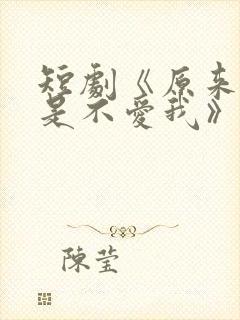 短劇《原來
是不愛我》
陳瑩